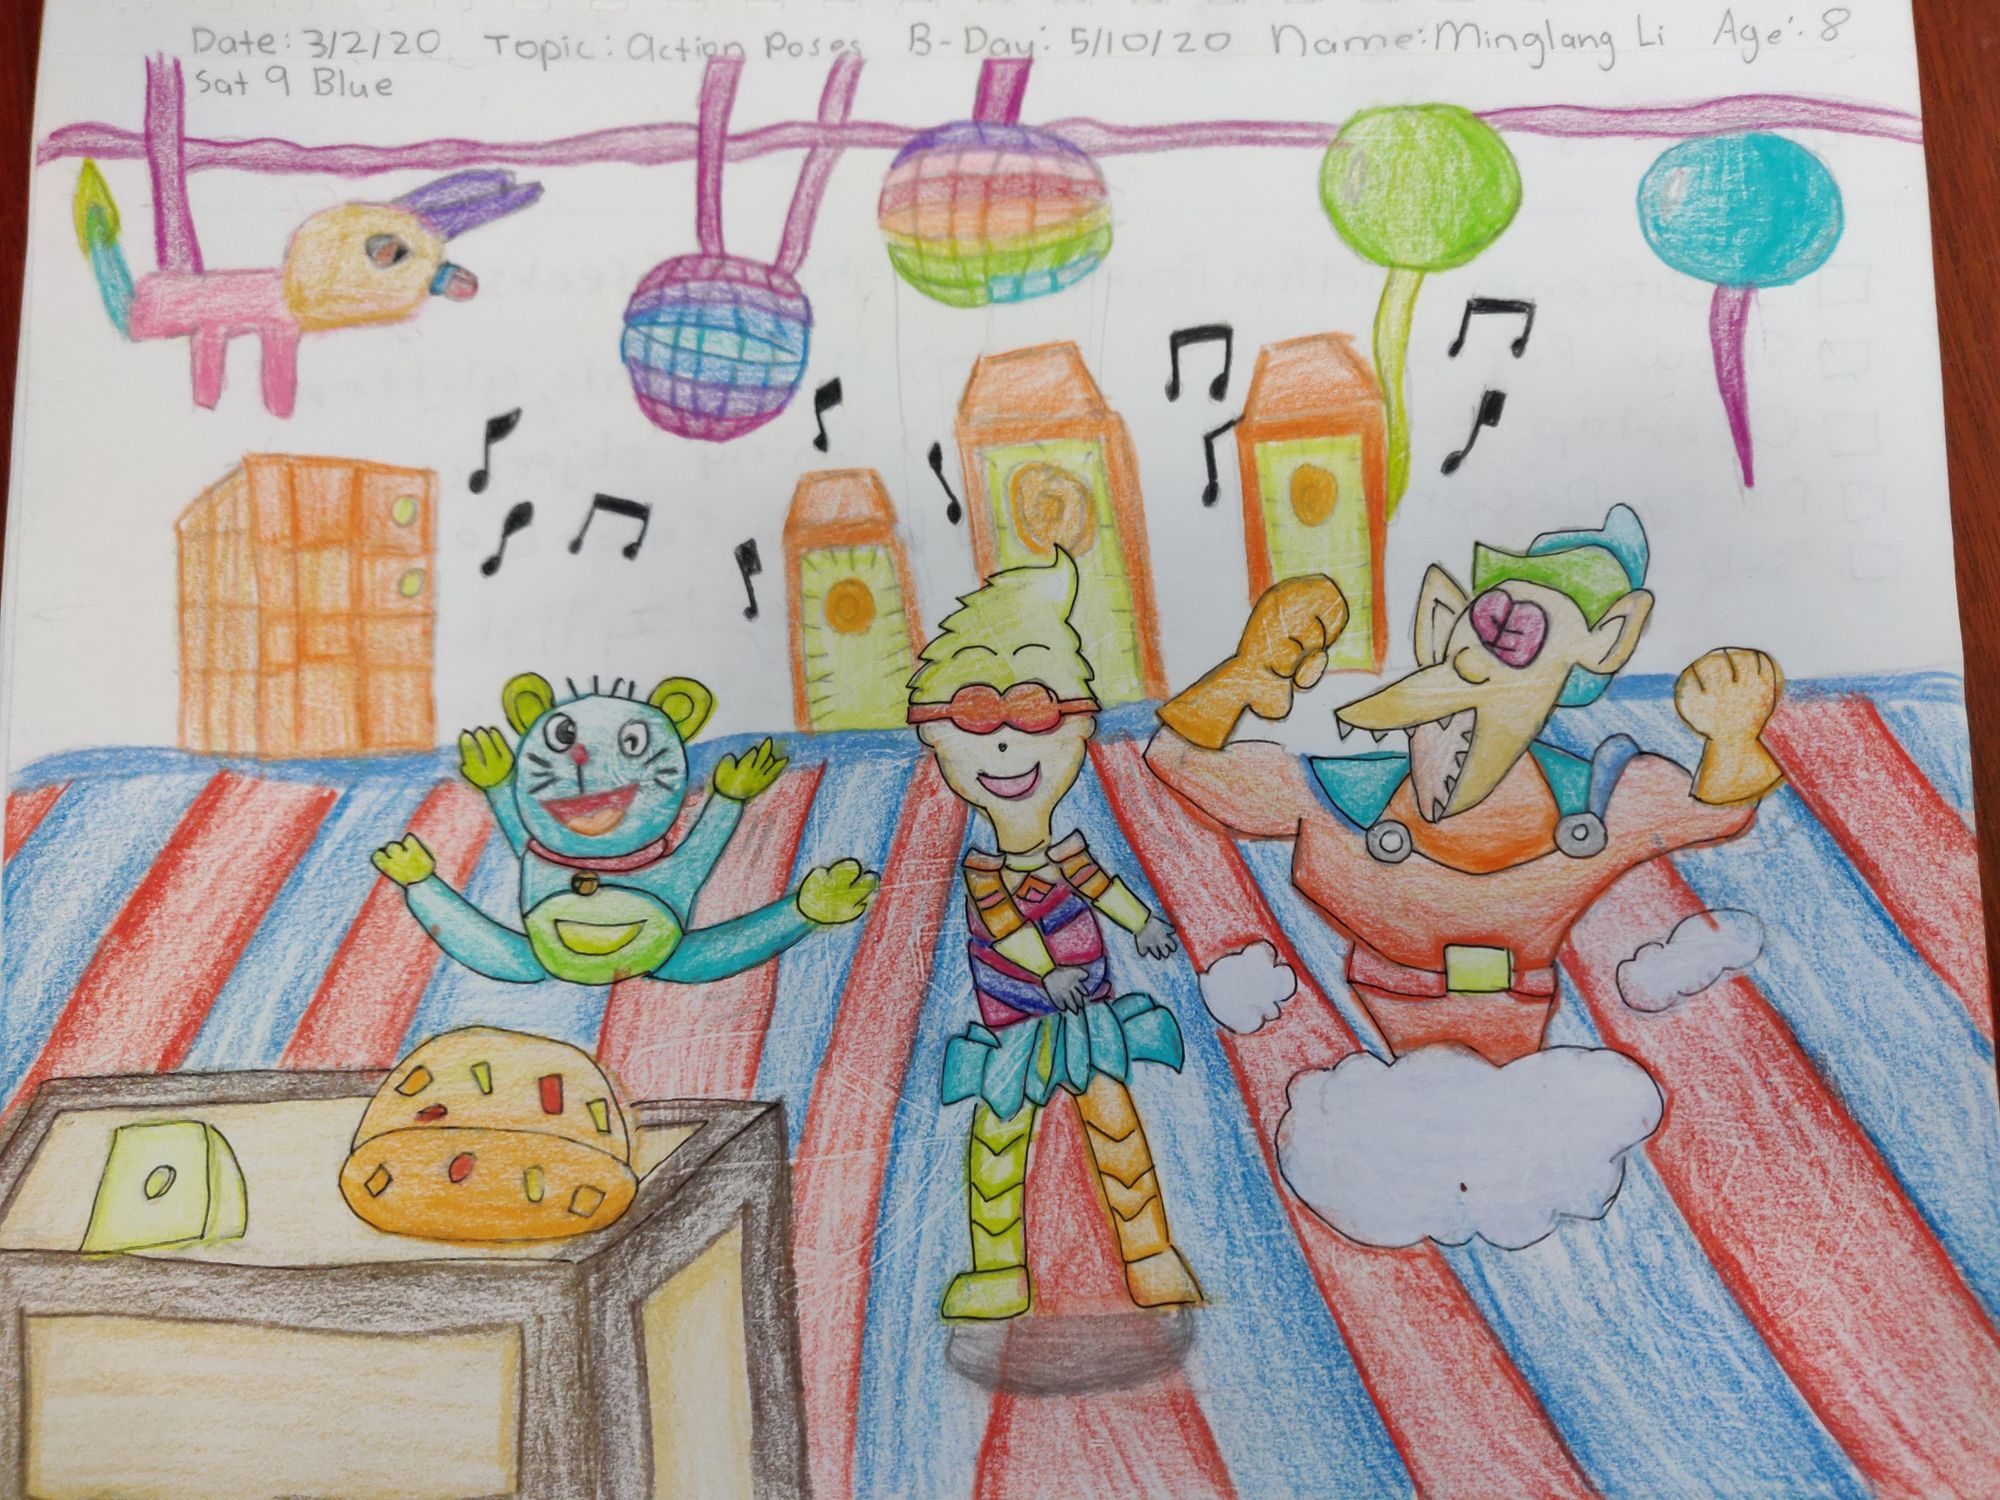 Date: 3/2/20 Topic: action Poses B-Day: 5/10/20 Name: Minglang Li Age: 8
Sat 9 Blue